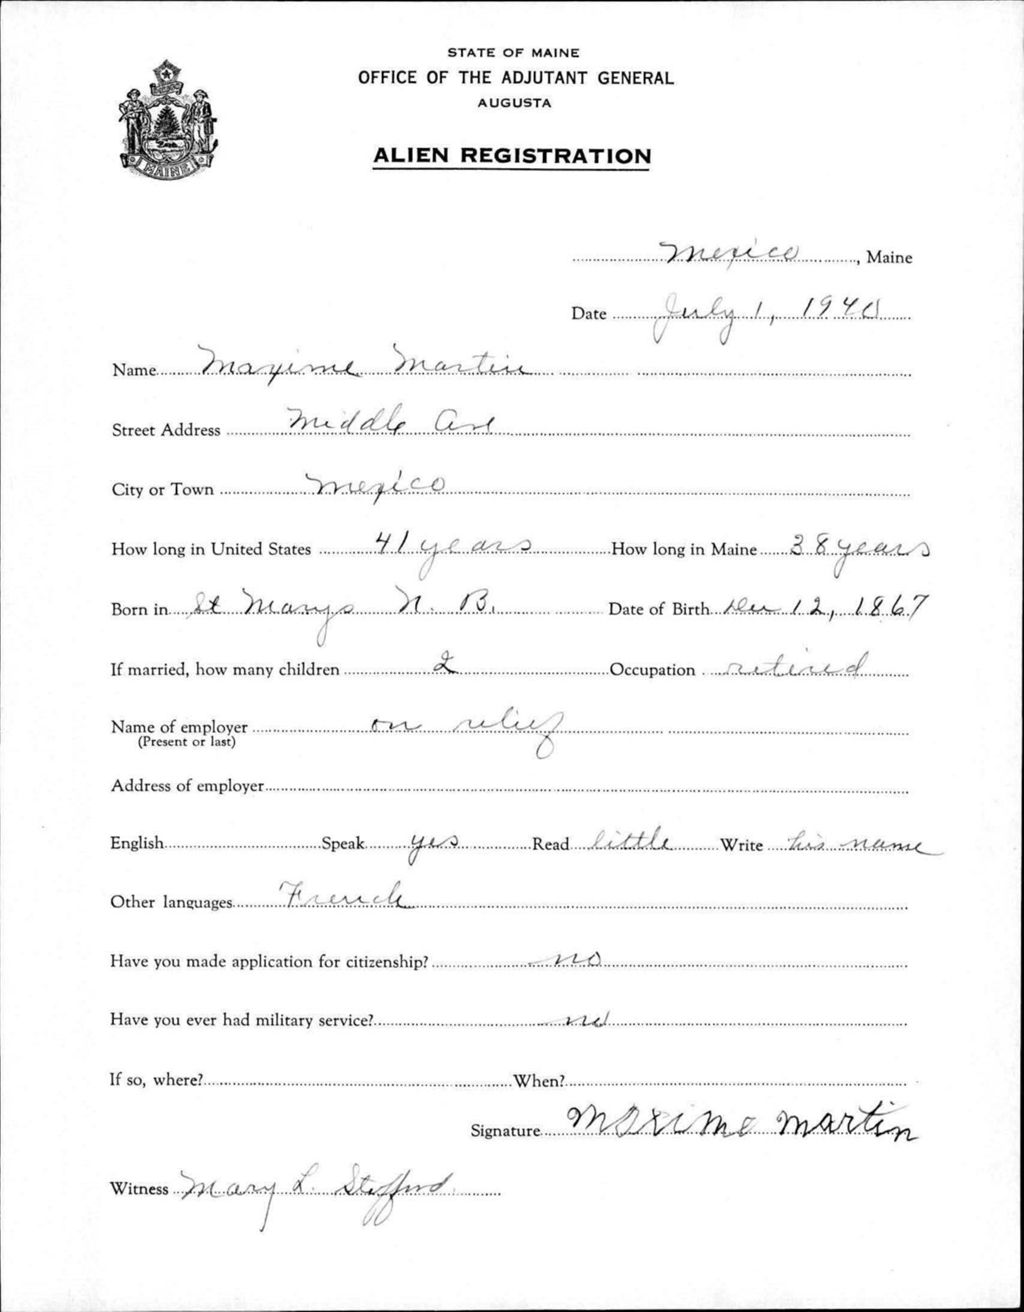 STATE OF MAINE
OFFICE OF THE ADJUTANT GENERAL
AUGUSTA
ALIEN REGISTRATION
MAINE
Mexico, Maine
Date July 1, 1940
Name Maxime Martin
Street Address Middle Ave
City or Town Mexico
How long in United States 41 years How long in Maine 38 years
Born in St Marys N. B. Date of Birth Dec 12, 1867
If married, how many children 2 Occupation retired
Name of employer on relief
(Present or last)
Address of employer
English Speak yes Read little Write his name
Other languages French
Have you made application for citizenship? no
Have you ever had military service? no
If so, where? When?
Signature Maxime Martin
Witness Mary L. Stafford